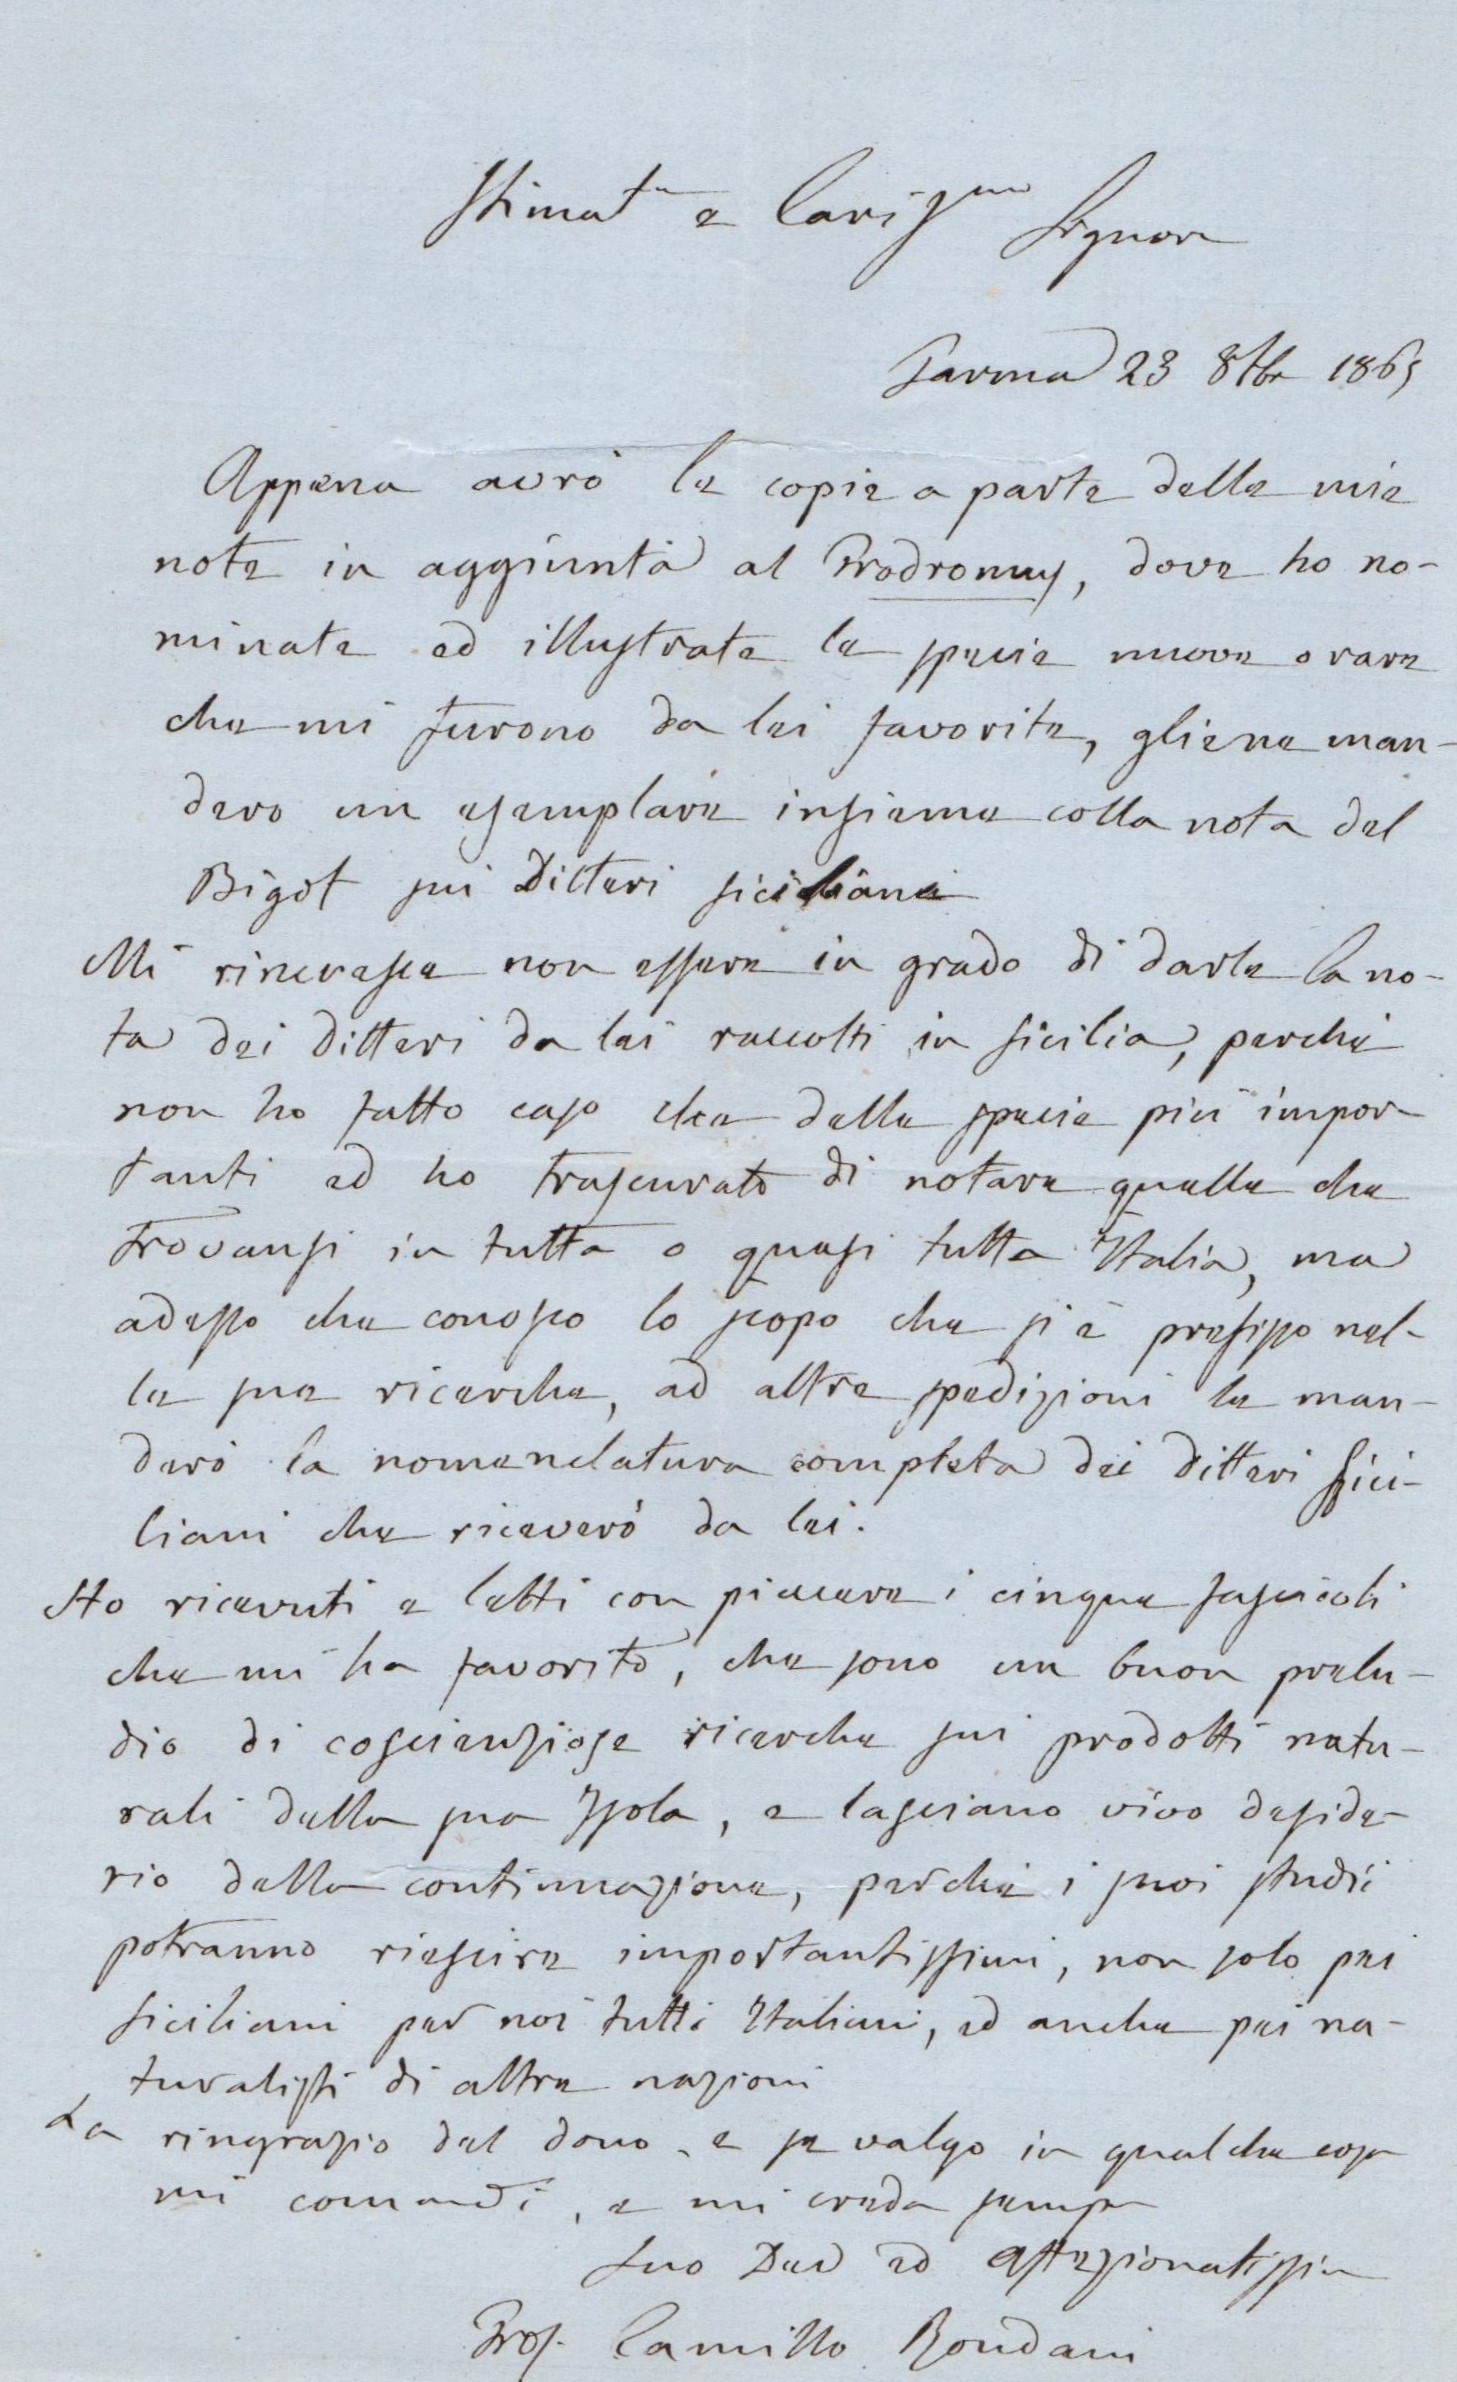 Stimat.mo e Cariss.mo Signore
Parma 23 8bre 1865
Appena avrò le copie a parte delle mie
note in aggiunta al Prodromus, dove ho no-
minate ed illustrate le specie nuove o rare
che mi furono da lei favorite, gliene man-
derò un esemplare insieme colla nota del
Bigot sui Ditteri siciliani
Mi rincresce non essere in grado di darle la no-
ta dei ditteri da lei raccolti in Sicilia, perchè
non ho fatto caso che delle specie più impor-
tanti ed ho trascurato di notare quelle che
trovansi in tutta o quasi tutta Italia, ma
adesso che conosco lo scopo che si è prefisso nel-
le sue ricerche, ad altre spedizioni le man-
derò la nomenclatura completa dei ditteri Sici-
liani che riceverò da lei.
Ho ricevuti e letti con piacere i cinque fascicoli
che mi ha favorito, che sono un buon prelu-
dio di coscienziose ricerche sui prodotti natu-
rali della sua Isola, e lasciano vivo deside-
rio della continuazione, perchè i suoi studii
potranno riescire importantissimi, non solo pei
Siciliani per noi tutti Italiani, ed anche pei na-
turalisti di altre nazioni
La ringrazio del dono, e se valgo in qualche cosa
mi comandi, e mi creda sempre
Suo Dev ed affezionatissimo
Prof. Camillo Rondani